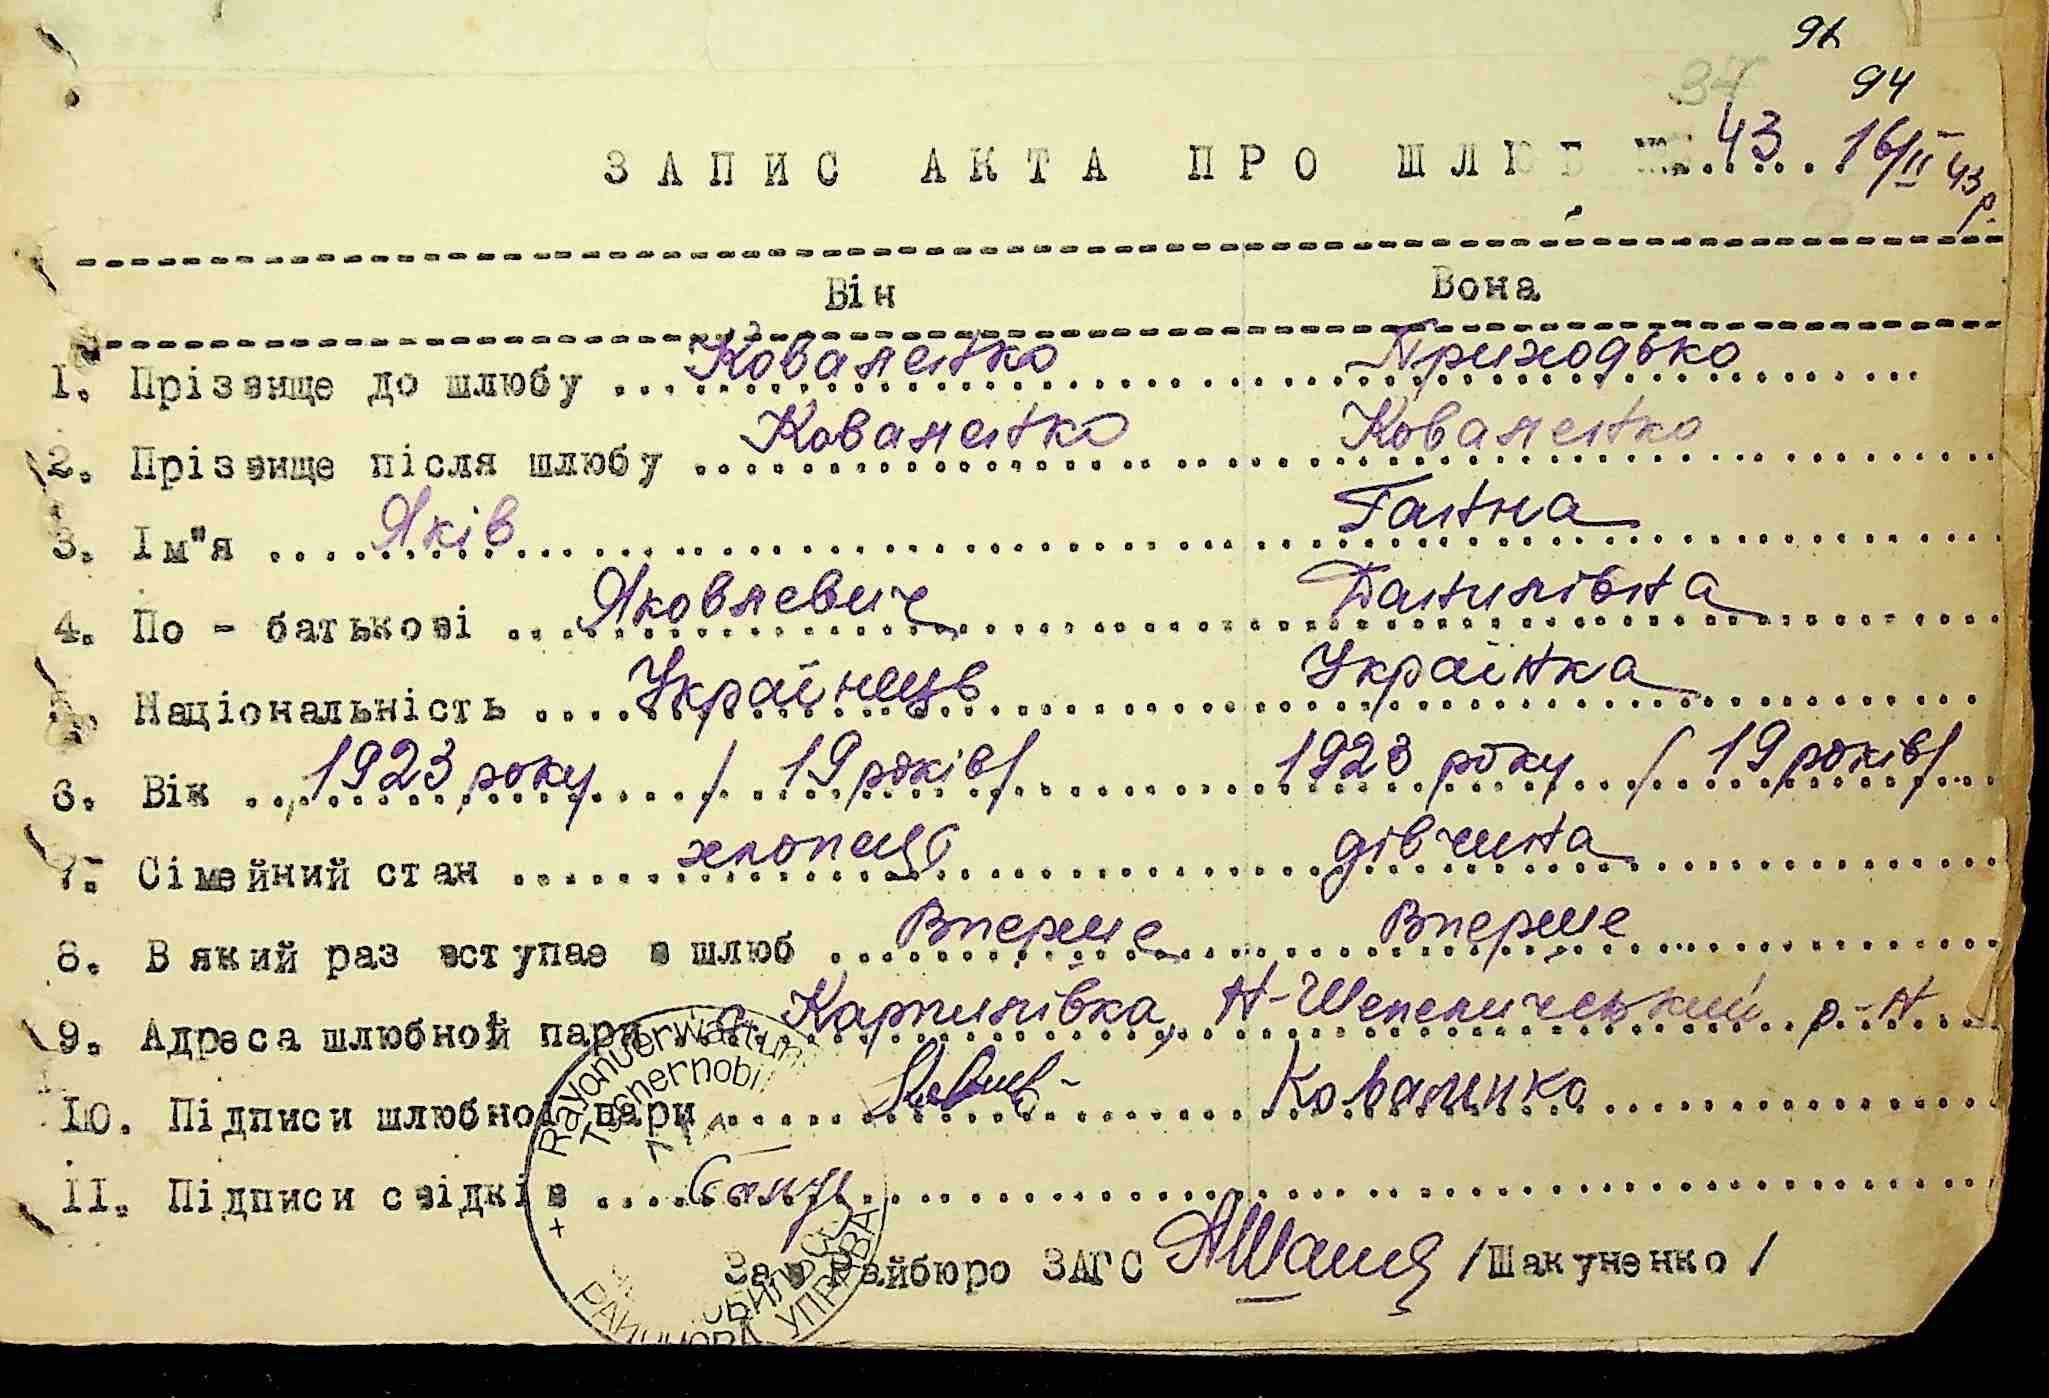 94
ЗАПИС АКТА ПРО ШЛЮБ № 43 16/II 43 р.
Він Вона
1. Прізвище до шлюбу Коваленко Приходько
2. Прізвище після шлюбу Коваленко Коваленко
3. Ім"я Яків Ганна
4. По - батькові Яковлевич Данилівна
5. Національність Українець Українка
6. Вік 1923 року / 19 років/ 1923 року / 19 років/
7. Сімейний стан хлопець дівчина
8. В який раз вступає в шлюб Вперше Вперше
9. Адреса шлюбної пари с. Карпилівка, Н-Шепеличський р-н
10. Підписи шлюбної пари Коваленко
11. Підписи свідків
Зав Райбюро ЗАГС /Шакуненко/
Rayonverwaltung
Tschernobil
РАЙОНОВА УПРАВА